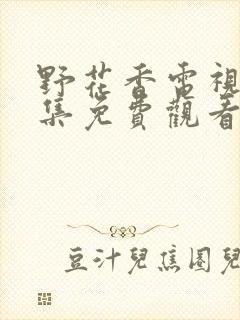 野花香電視
集免費觀看
豆汁兒焦圈兒